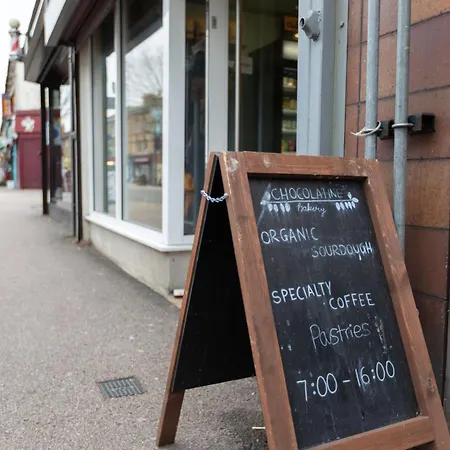 CHOCOLATINE
Bakery
ORGANIC
SOURDOUGH
SPECIALTY
COFFEE
Pastries
7:00 - 16:00